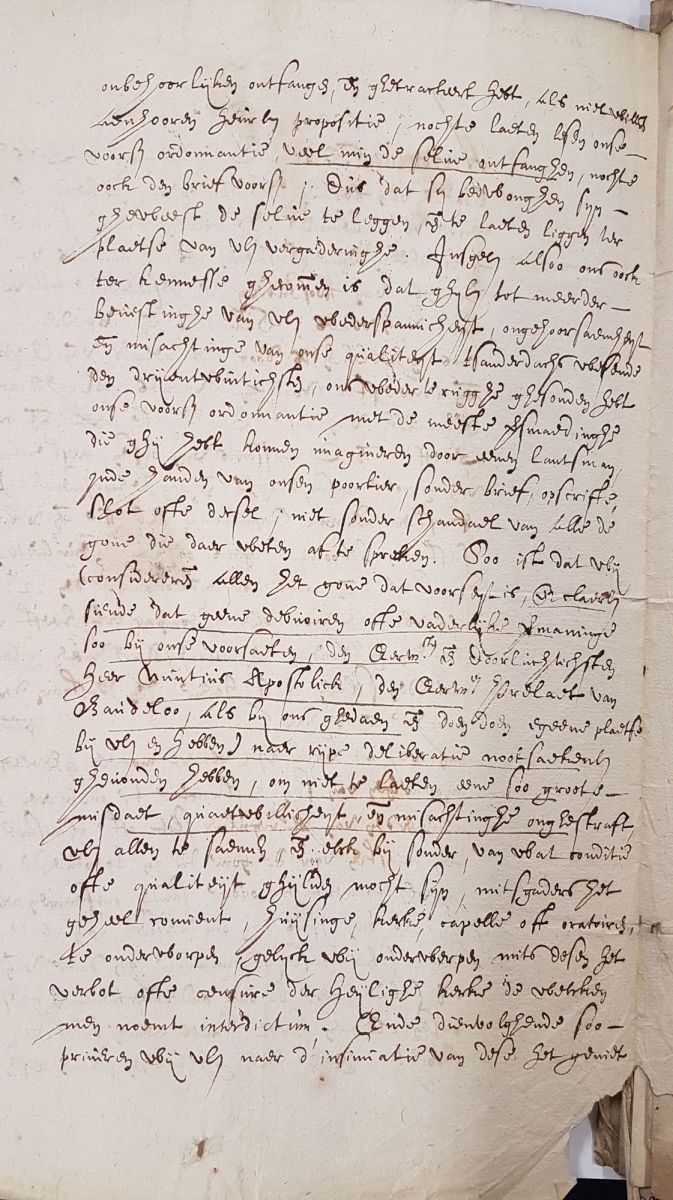 onbehoorlijken ontfangen, en ghetracteert hebt, als niet willen
aenhooren heurln propositie, nochte laeten lesen onse
voors ordonnantie, veel min de selue ontfanghen, nochte
oock den brief voors; Dus dat sij bedwonghen syn
gheweest de selue te leggen, en te laeten liggen ter
plaetse van vln vergaderinghe. Insgeln alsoo ons oock
ter kennesse ghecommen is dat ghyln tot meerder
beuestinghe van vln wederspannicheyt, ongehoorsaemheyt
en misachtinge van onse qualiteyt tsanderdachs wesende
den dryentwintichsten, ons weder te rugghe ghesonden hebt
onse voors ordonnantie met de meeste versmaedinghe
die ghij hebt konnen imagineren door eenen lantsman,
inde handen van onsen poortier, sonder brief, opscrifte,
slot ofte decsel, niet sonder schandael van alle de
gone die daer weten af te spreken. Soo ist dat wij
(considererende allen het gone dat voorseyt is, en claerln
siende dat geene debuoiren ofte vaderlijke vermaninge
soo bij onse voorsaeten, den Eerw en Doorluchtichsten
Heer Nuntius Apostolick, den Eerw Prelaet van
Baudeloo, als bij ons ghedaen en doen doen egeene plaetse
bij vln en hebben) naer rijpe deliberatie nootsaekeln
gheuonden hebben, om niet te laeten eene soo groote
misdaet, quaetwillicheyt, en misachtinghe onghestraft,
vln allen te saemen, en elck bij sonder, van wat conditie
ofte qualiteijt ghijlieden mocht syn, mitsgaders het
geheel conuent, huijsinge, kercke, capelle oft oratoiren,
te onderworpen, gelyck wij onderwerpen mits desen het
verbot ofte censure der heylighe kercke de welcken
men noemt interdictum. Ende dienvolghende soo
priueren wij vln naer d'insinuatie van dese, het geniet